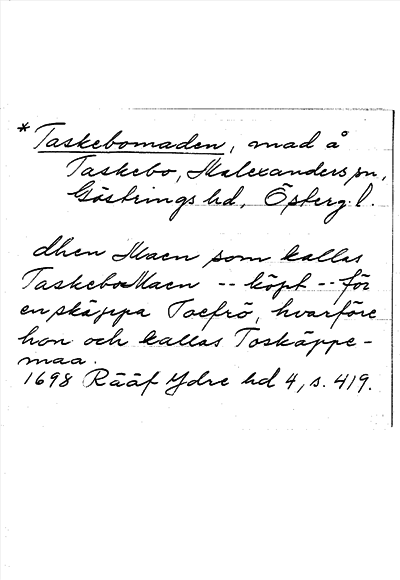 * Taskebomaden, mad å
Taskebo, Malexanders sn,
Göstrings hd, Österg. l.
dhen Maen som kallas
TaskeboMaen -- köpt -- för
en skäppa Toefrö, hvarföre
hon och kallas Toskäppe-
maa.
1698 Rääf Ydre hd 4, s. 419.